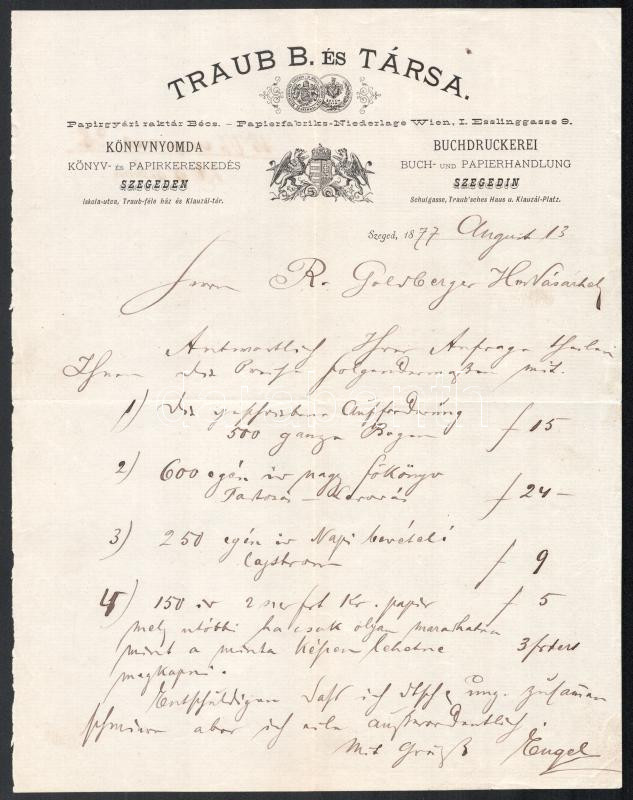 TRAUB B. ÉS TÁRSA.
Papirgyári raktár Bécs. – Papierfabriks-Niederlage Wien, I. Esslinggasse 9.
KÖNYVNYOMDA
KÖNYV- ÉS PAPIRKERESKEDÉS
SZEGEDEN
Iskola-utca, Traub-féle ház és Klauzál-tér.
BUCHDRUCKEREI
BUCH- UND PAPIERHANDLUNG
SZEGEDIN
Schulgasse, Traub'sches Haus u. Klauzál-Platz.
Szeged, 1877 August 13
Herrn R. Goldberger HmVásárhely
Antwortlich Ihrer Anfrage theilen
Ihnen die Preise folgendermaßen mit.
1) die geschriebene Aufforderung
500 ganze Bogen f 15
2) 600 egén ív nagy főkönyv
Tartozás – Követelés f 24 –
3) 250 egén ív Napi bevételi
lajstrom f 9
4) 150 ív 2 szer frt Kr. papir f 5
mely utóbbi ha csak olyan maradhatna
mint a minta képen lehetne 3 frtért
megkapni.
Entschuldigen daß ich dtsch & ung. zusammen
schmiere aber ich eile außerordentlich.
Mit Gruß Engel